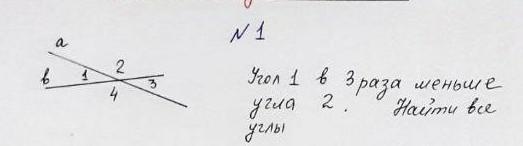 N 1
a
в 1 2 3
4
Угол 1 в 3 раза меньше
угла 2. Найти все
углы